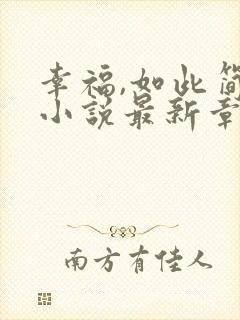 幸福,如此简
小说最新章
南方有佳人